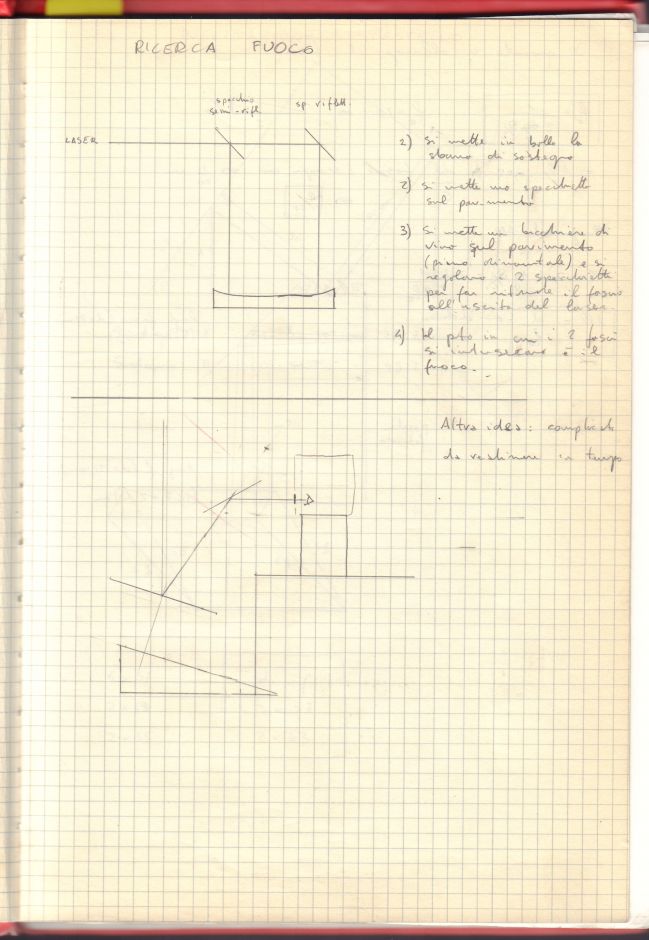 RICERCA FUOCO
specchio
semi-rifl.
sp. riflett.
LASER
1) Si mette in bolla la
sbarra di sostegno
2) si mette uno specchietto
sul pavimento
3) Si mette un bicchiere di
vino sul pavimento
(piano orizzontale) e si
regolano i 2 specchietti
per far ritornare il fascio
all'uscita del laser.
4) Il pto in cui i 2 fasci
si intersecano è il
fuoco.
Altra idea:
da in tempo